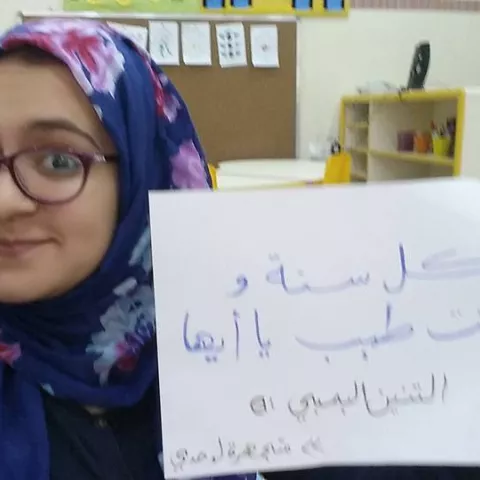 كل سنة و
ت طيب يا أيها
التنين البمبي